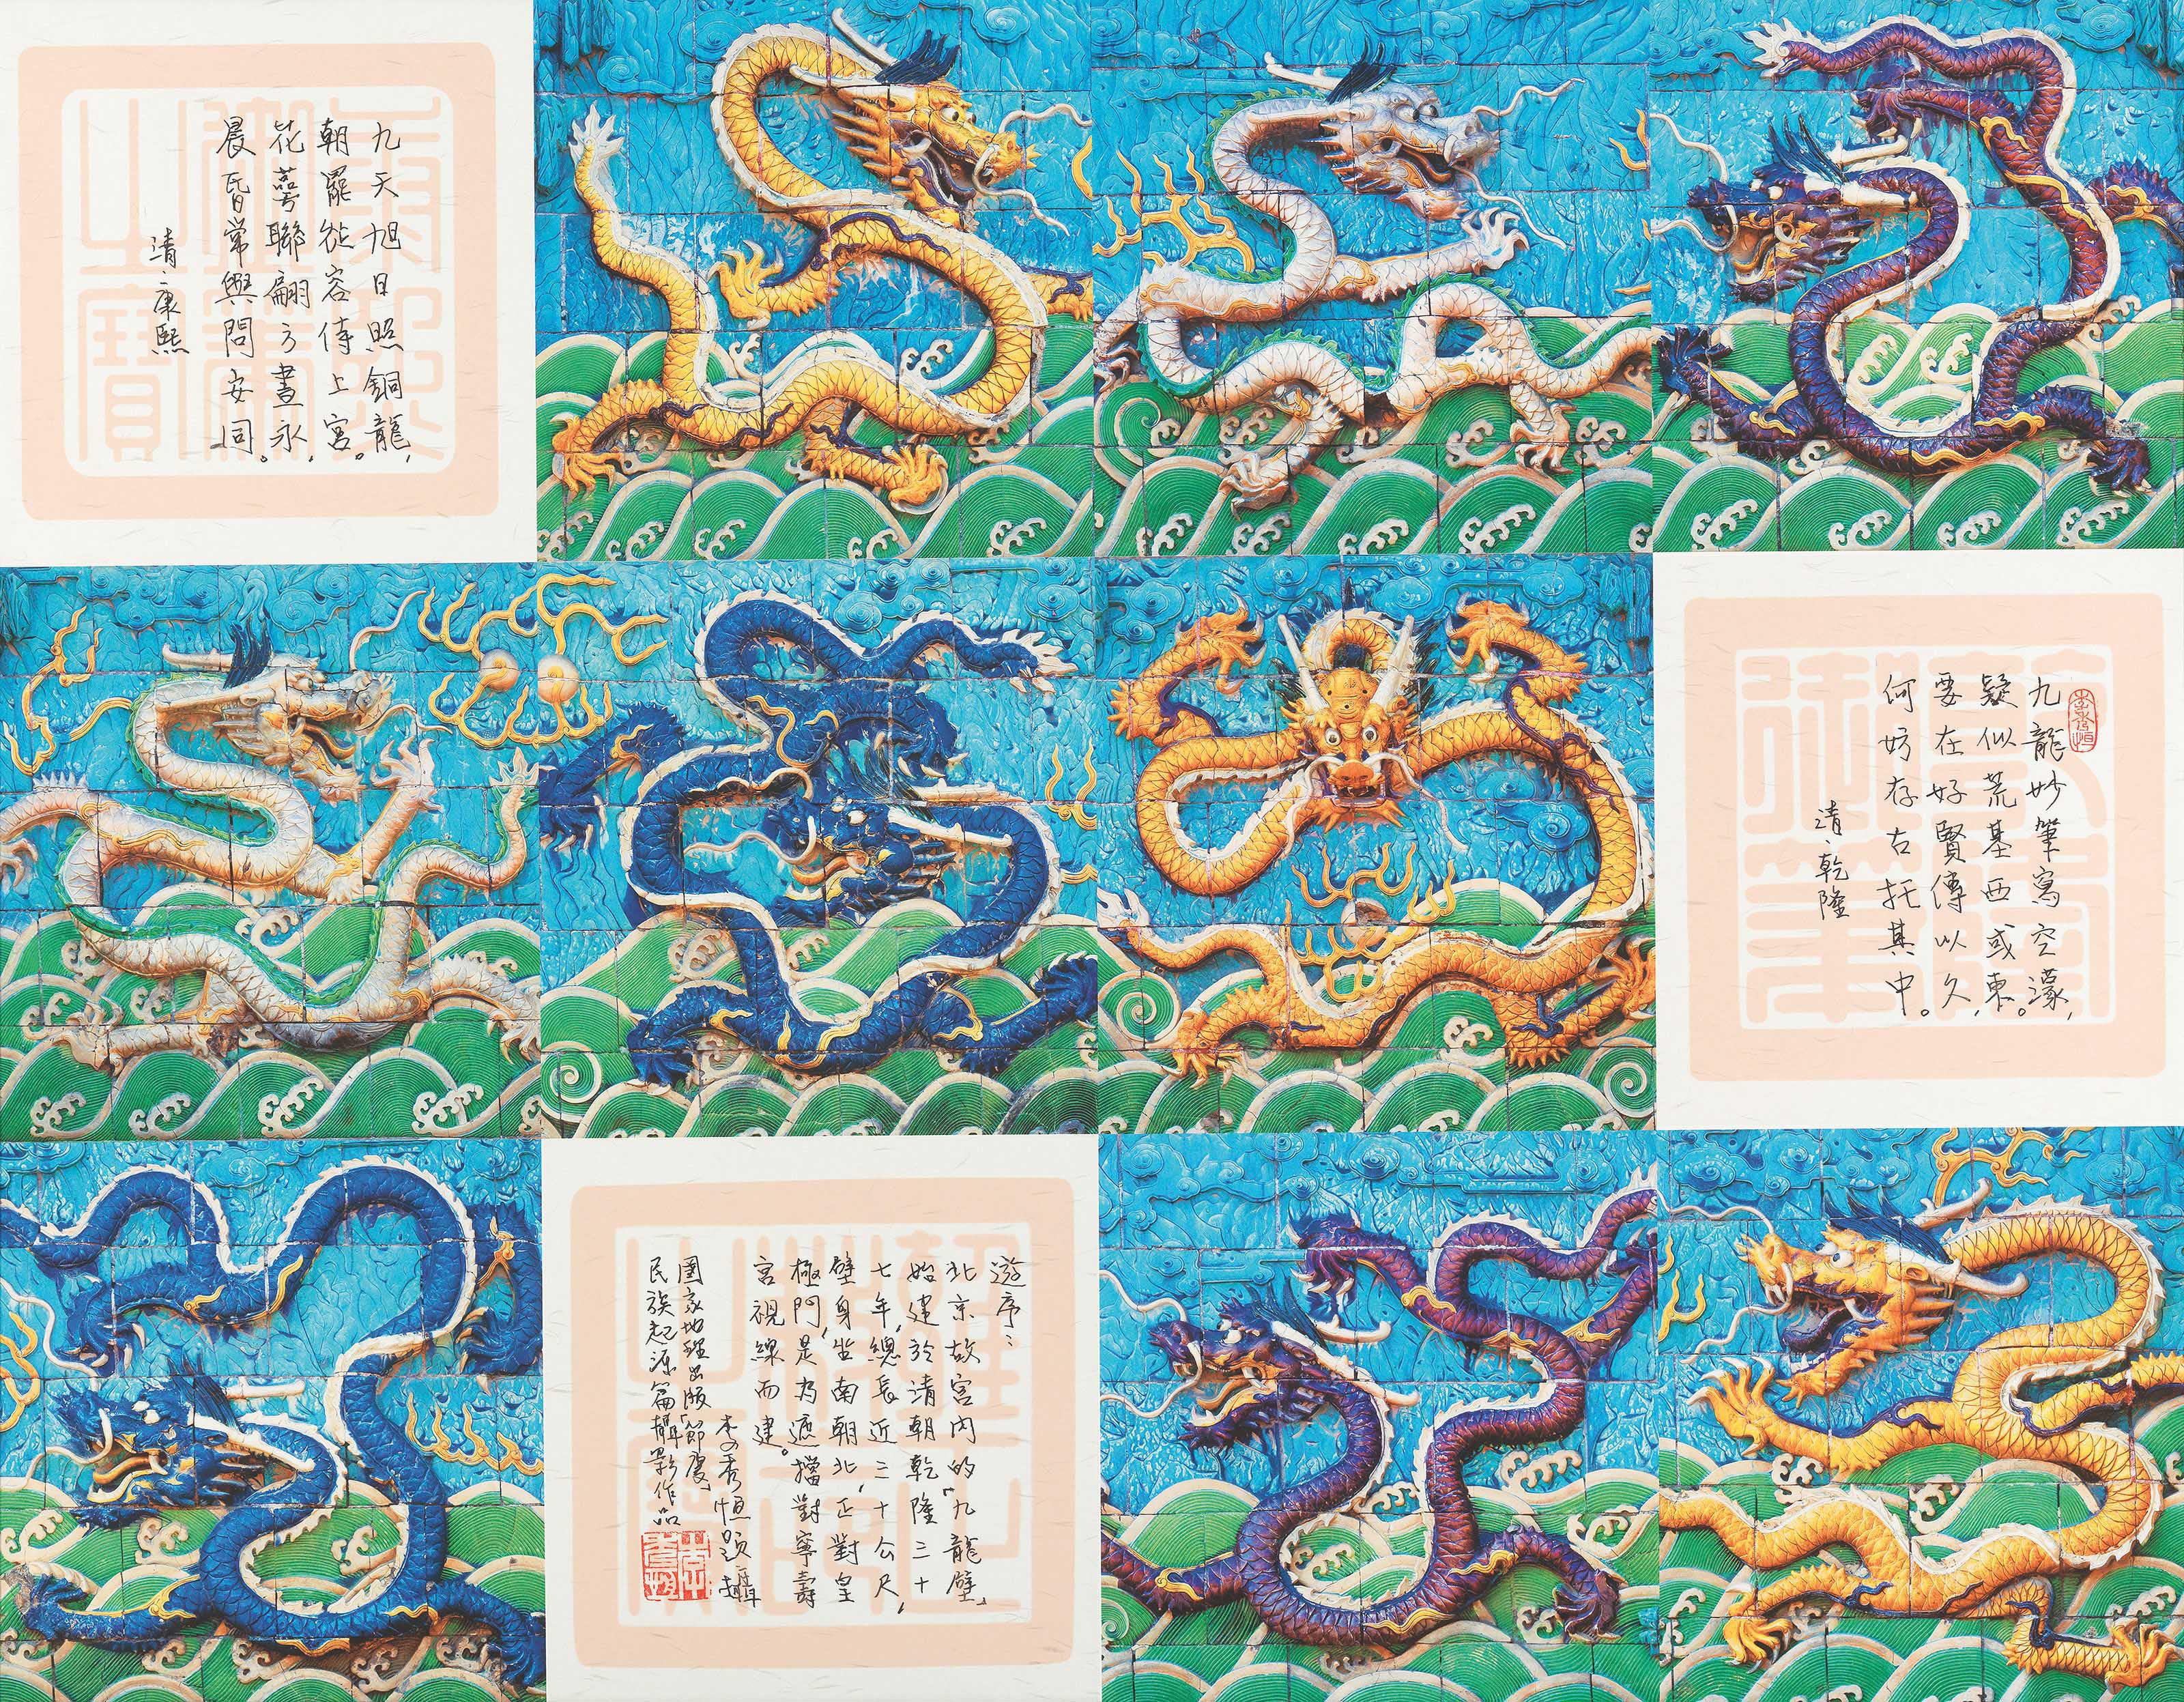 九天旭日照銅龍,
朝罷從容侍上宮。
花萼聯翩方晝永,
晨昏常與問安同。
清、康熙
康熙御筆之寶
李秀恒
九龍妙筆寫空濛,
疑似荒基西或東。
要在好賢傳以久,
何妨存古托其中。
清、乾隆
乾隆御筆
遊序:
北京故宮內的「九龍壁」
始建於清朝乾隆三十
七年,總長近三十公尺,
壁身坐南朝北,正對皇
極門,是為遮擋對寧壽
宮視線而建。
李秀恒題、攝
國家地理出版「節慶」
民族起源篇攝影作品
李秀恒